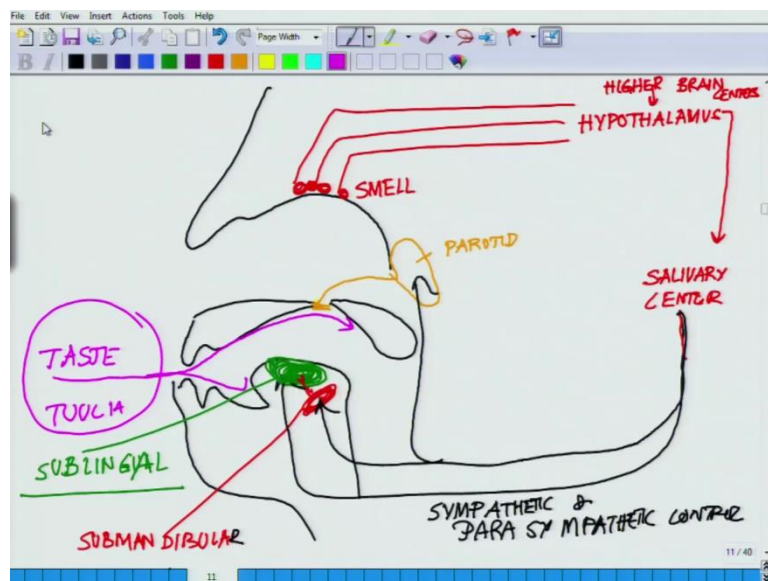 File Edit View Insert Actions Tools Help
Page Width
B I
HIGHER BRAIN
CENTERS
HYPOTHALAMUS
SMELL
PAROTID
SALIVARY
CENTER
TASTE
TOUCH
SUBLINGIAL
SUBMANDIBULAR
SYMPATHETIC &
PARA SYMPATHETIC CONTROL
11 / 40
11